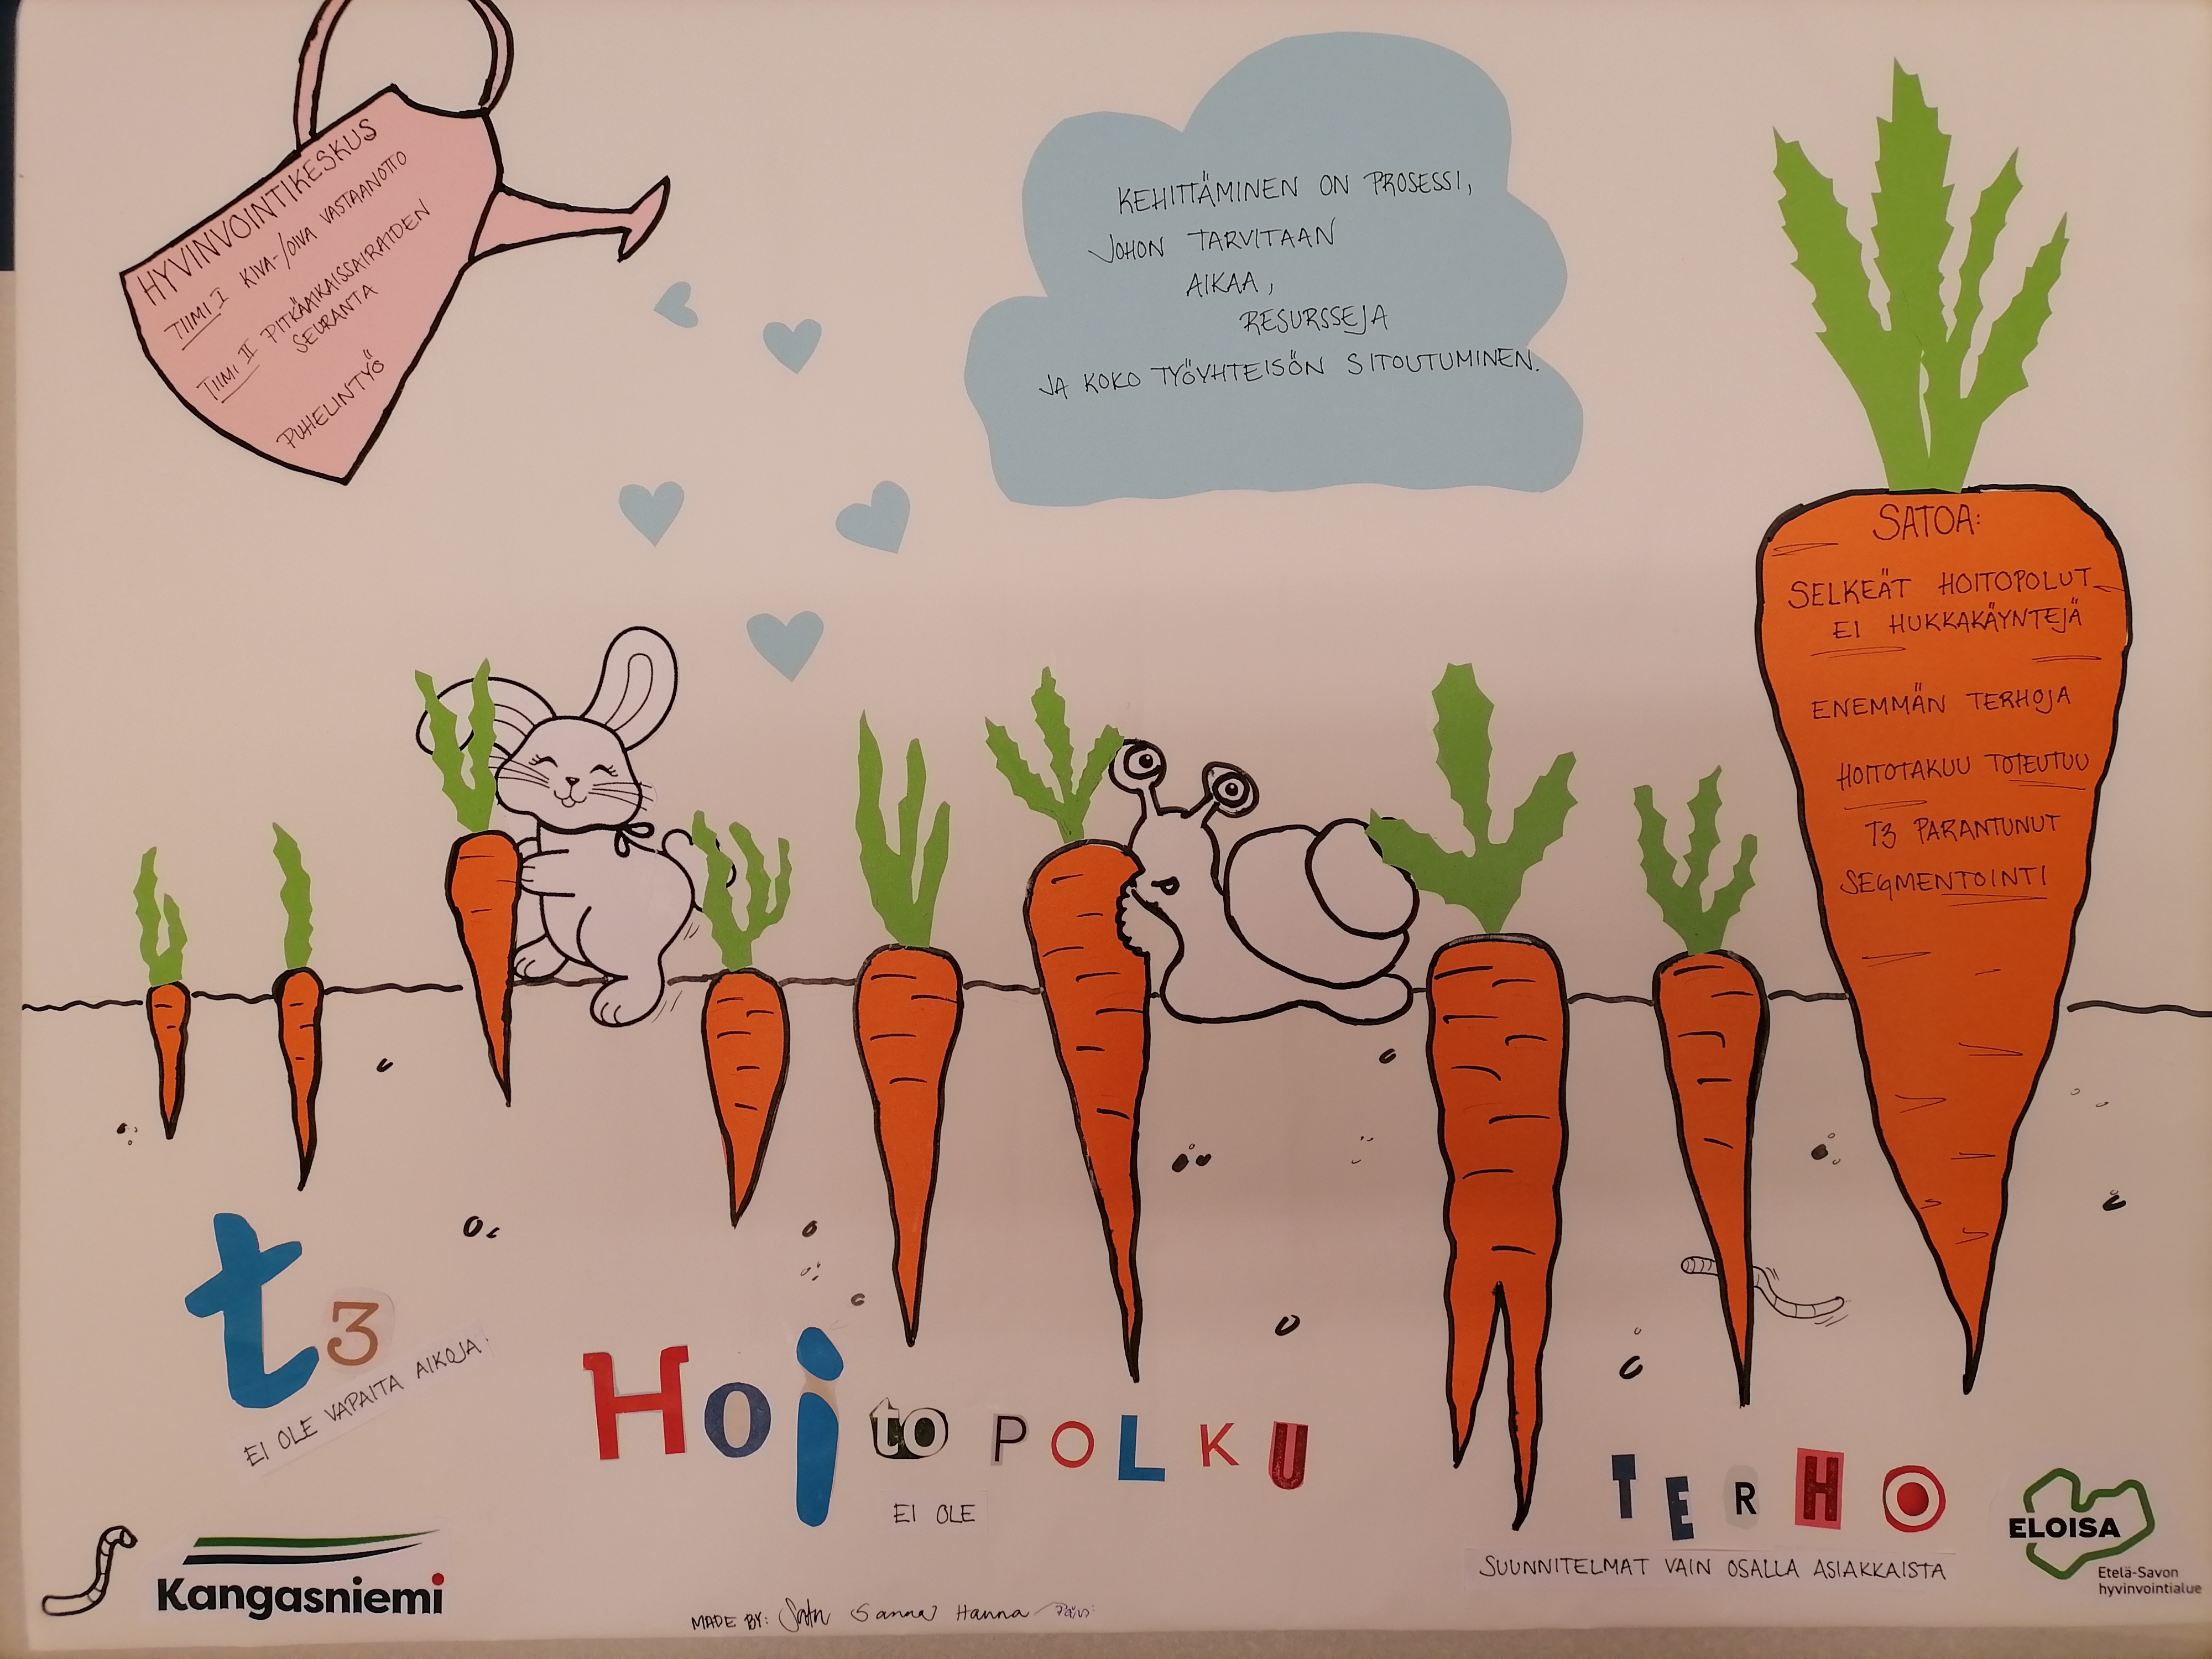 HYVINVOINTIKESKUS
TIIMI I KIVA-/OIVA VASTAANOTTO
TIIMI II PITKÄAIKAISSAIRAIDEN
SEURANTA
PUHELINTYÖ
KEHITTÄMINEN ON PROSESSI,
JOHON TARVITAAN
AIKAA,
RESURSSEJA
JA KOKO TYÖYHTEISÖN SITOUTUMINEN.
SATOA:
SELKEÄT HOITOPOLUT
EI HUKKAKÄYNTEJÄ
ENEMMÄN TERHOJA
HOITOTAKUU TOTEUTUU
T3 PARANTUNUT
SEGMENTOINTI
t3
EI OLE VAPAITA AIKOJA!
HOitoPOLKU
EI OLE
TERHO
SUUNNITELMAT VAIN OSALLA ASIAKKAISTA
Kangasniemi
MADE BY: Satu Sanna Hanna Päivi
ELOISA
Etelä-Savon
hyvinvointialue